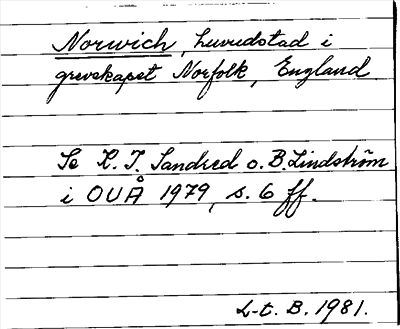 Norwich, huvudstad i
grevskapet Norfolk, England
Se K. I. Sandred o. B. Lindström
i OUÅ 1979, s. 6 ff.
L-t. B. 1981.